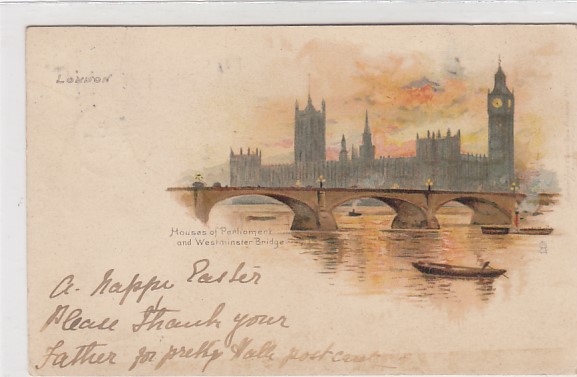 LONDON
Houses of Parliament
and Westminster Bridge
A Happy Easter
Please Thank your
Father for pretty postcard